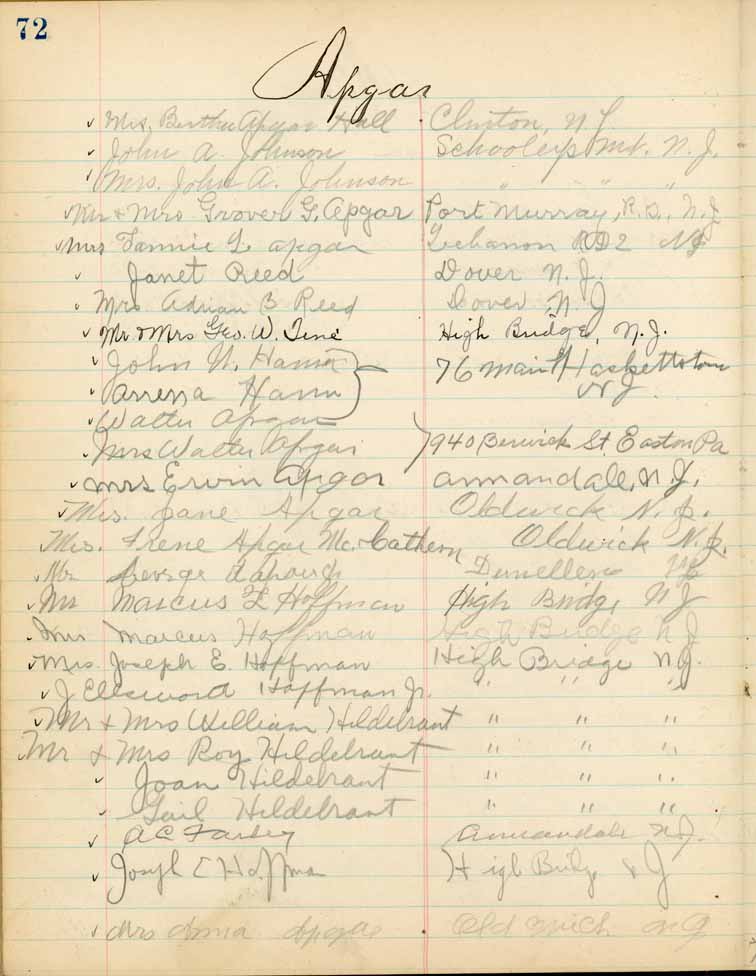 72
Apgar
Mrs. Bertha Apgar Hall Clinton, N J
John A. Johnson Schooleys Mt. N. J.
Mrs. John A. Johnson " " "
Mr & Mrs Grover G. Apgar Port Murray, R.D., N.J
Mrs Fannie L. Apgar Lebanon RD2 NJ
Janet Reed Dover N. J.
Mrs. Adrian B Reed Dover, N. J
Mr & Mrs Geo. W. High Bridge, N. J.
John N. Hann 76 Main St Hackettstown
Hann N J.
Walter Apgar
Mrs Walter Apgar 940 Berwick St. Easton Pa
Mrs Ervin Apgar Annandale, N. J.
Mrs. Jane Apgar Oldwick N. J.
Mrs. Irene Apgar Mc. Cathern Oldwick N. J.
Mr George Dunellen NJ
Mr Marcus F Hoffman High Bridge N J
Mrs Marcus Hoffman High Bridge N J
Mrs. Joseph E. Hoffman High Bridge N.J.
J Ellsword Hoffman Jr. " " "
Mr & Mrs William Hildebrant " " "
Mr & Mrs Roy Hildebrant " " "
Joan Hildebrant " " "
Gail Hildebrant " " "
A C Farley Annandale N.J.
Joseph E Hoffman High Bridge N J
Mrs Anna Apgar Old Wich N J